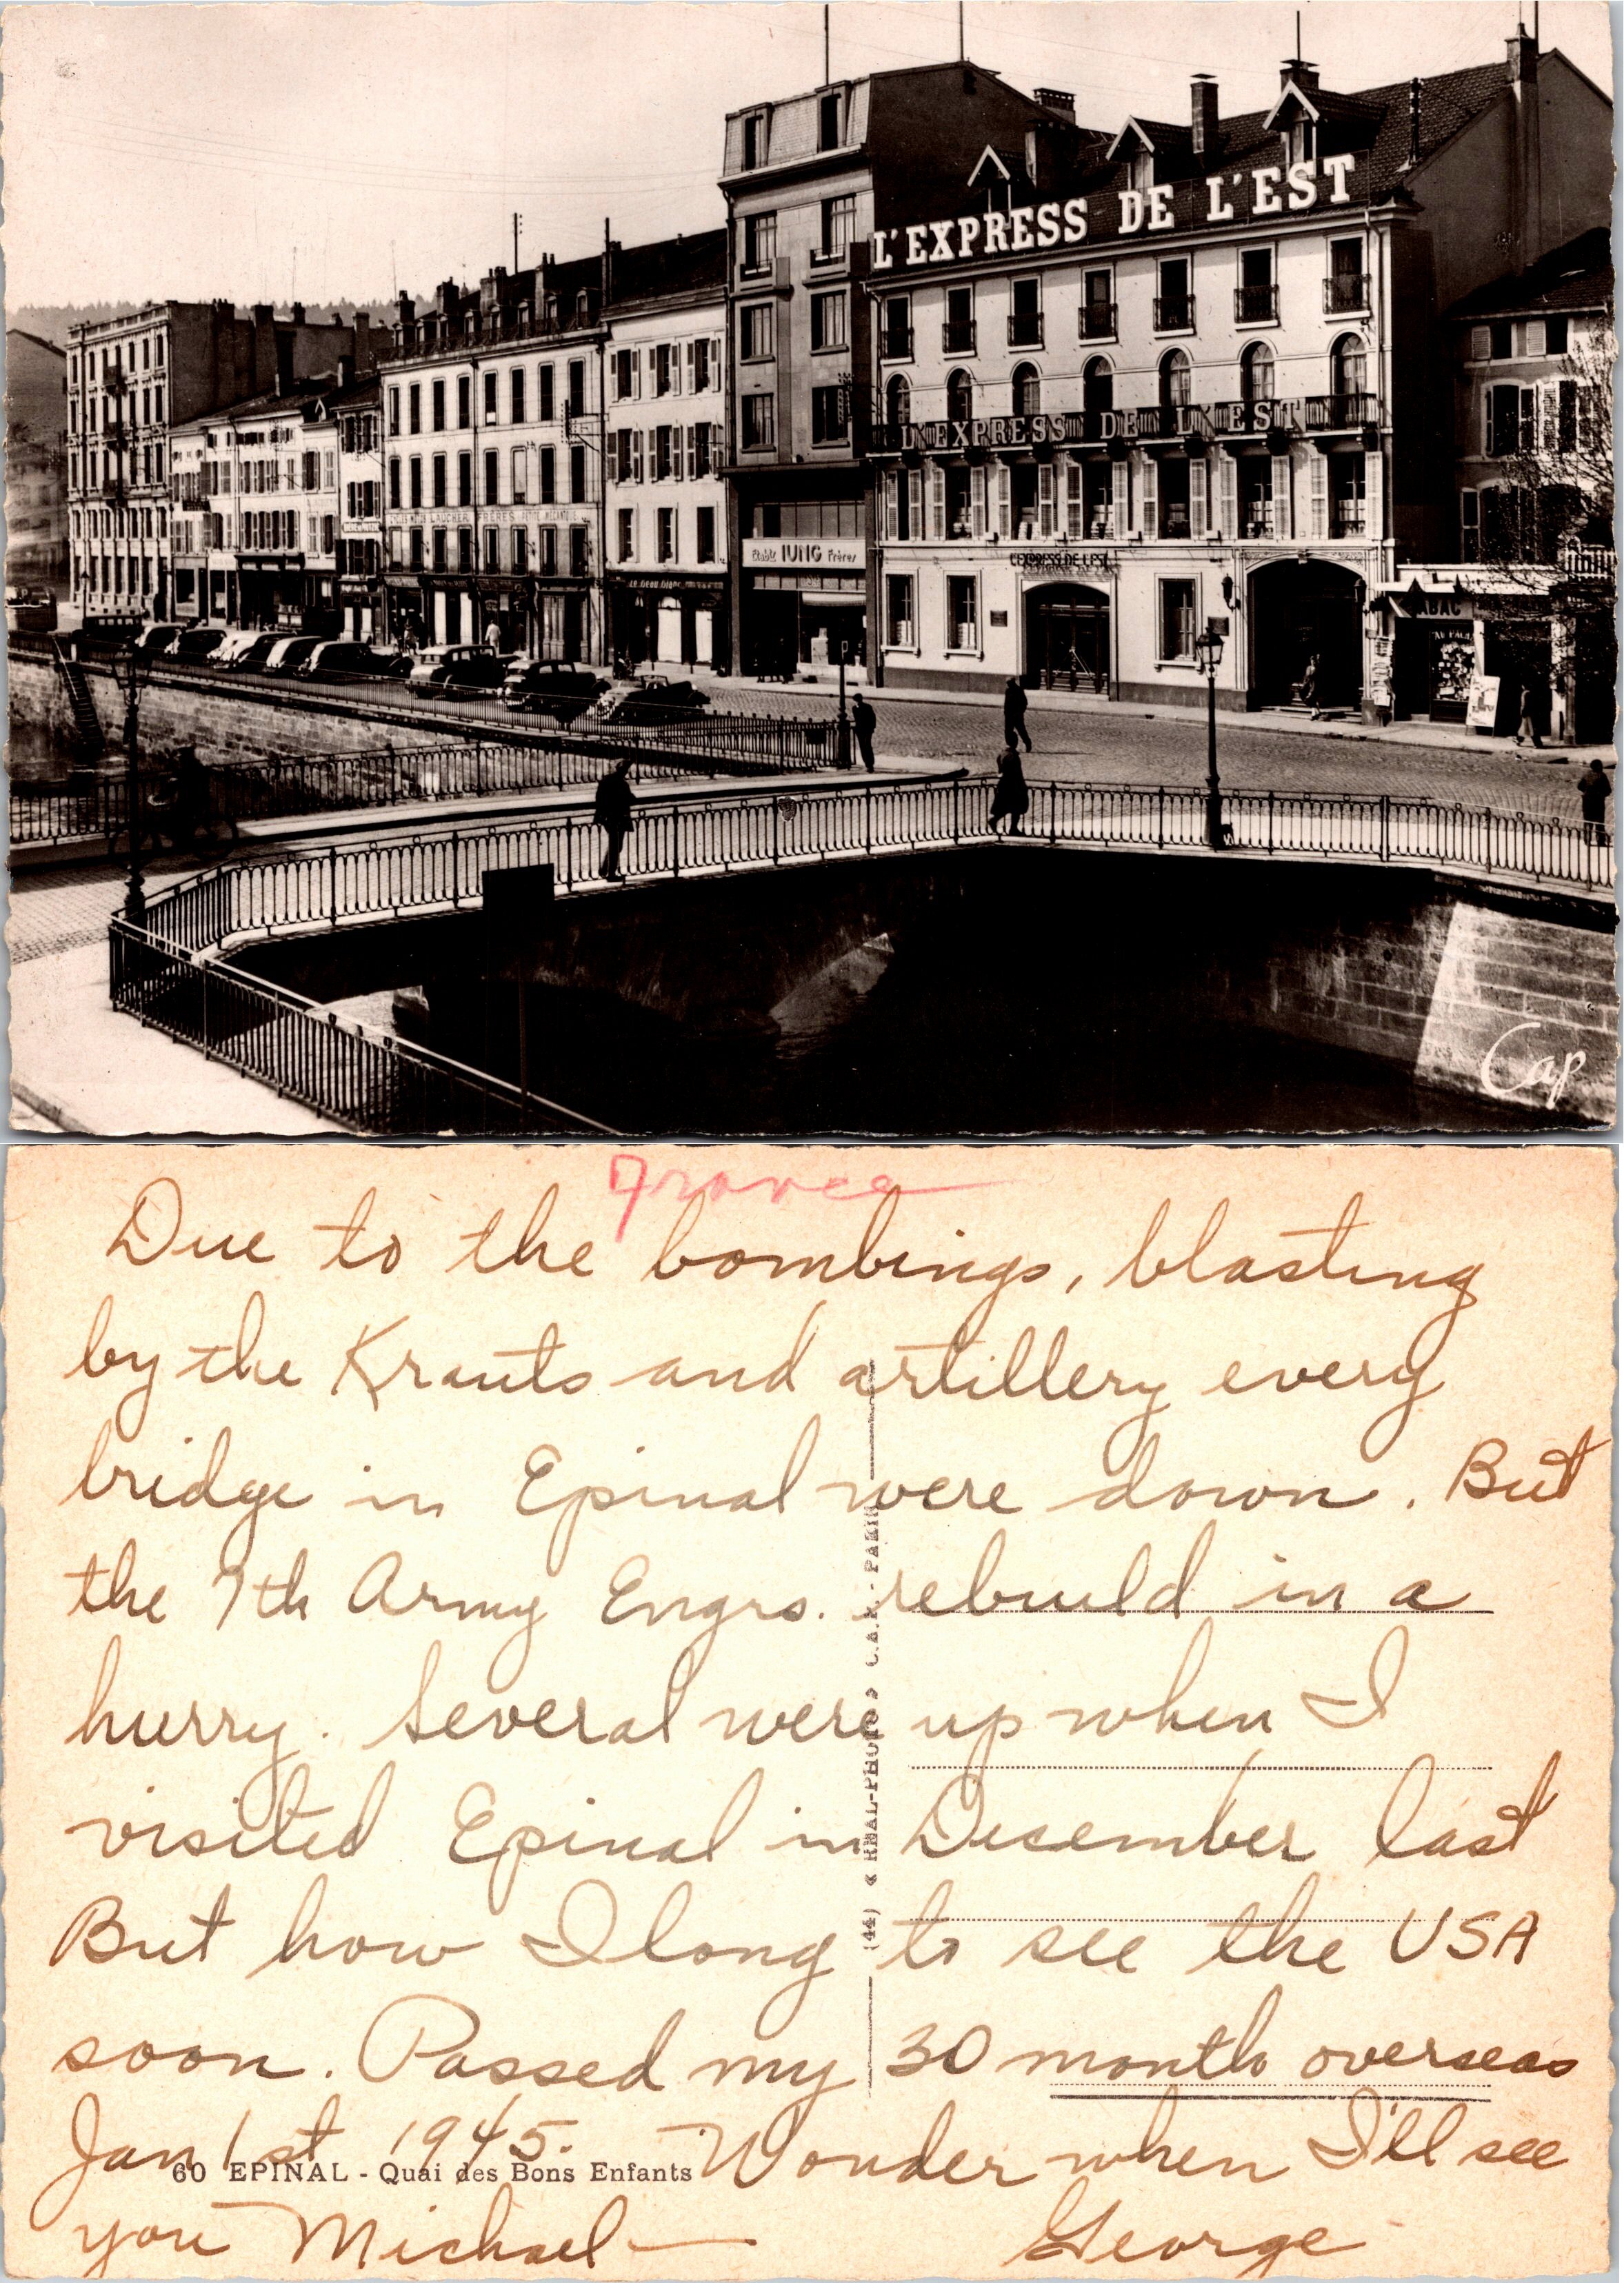 L'EXPRESS DE L'EST
L'EXPRESS DE L'EST
LAUCHER FRERES
Etabts IUNG Frères
L'EXPRESS DE L'EST
TABAC
Cap
France
Due to the bombings, blasting
by the Krauts and artillery every
bridge in Epinal were down. But
the 7th Army Engrs. rebuild in a
hurry. Several were up when I
visited Epinal in December last
But how I long to see the USA
soon. Passed my 30 month overseas
Jan 1st 1945. Wonder when I'll see
you Michael — George
60 EPINAL - Quai des Bons Enfants
(44) « REAL-PHOTO » C.A.P. - PARIS